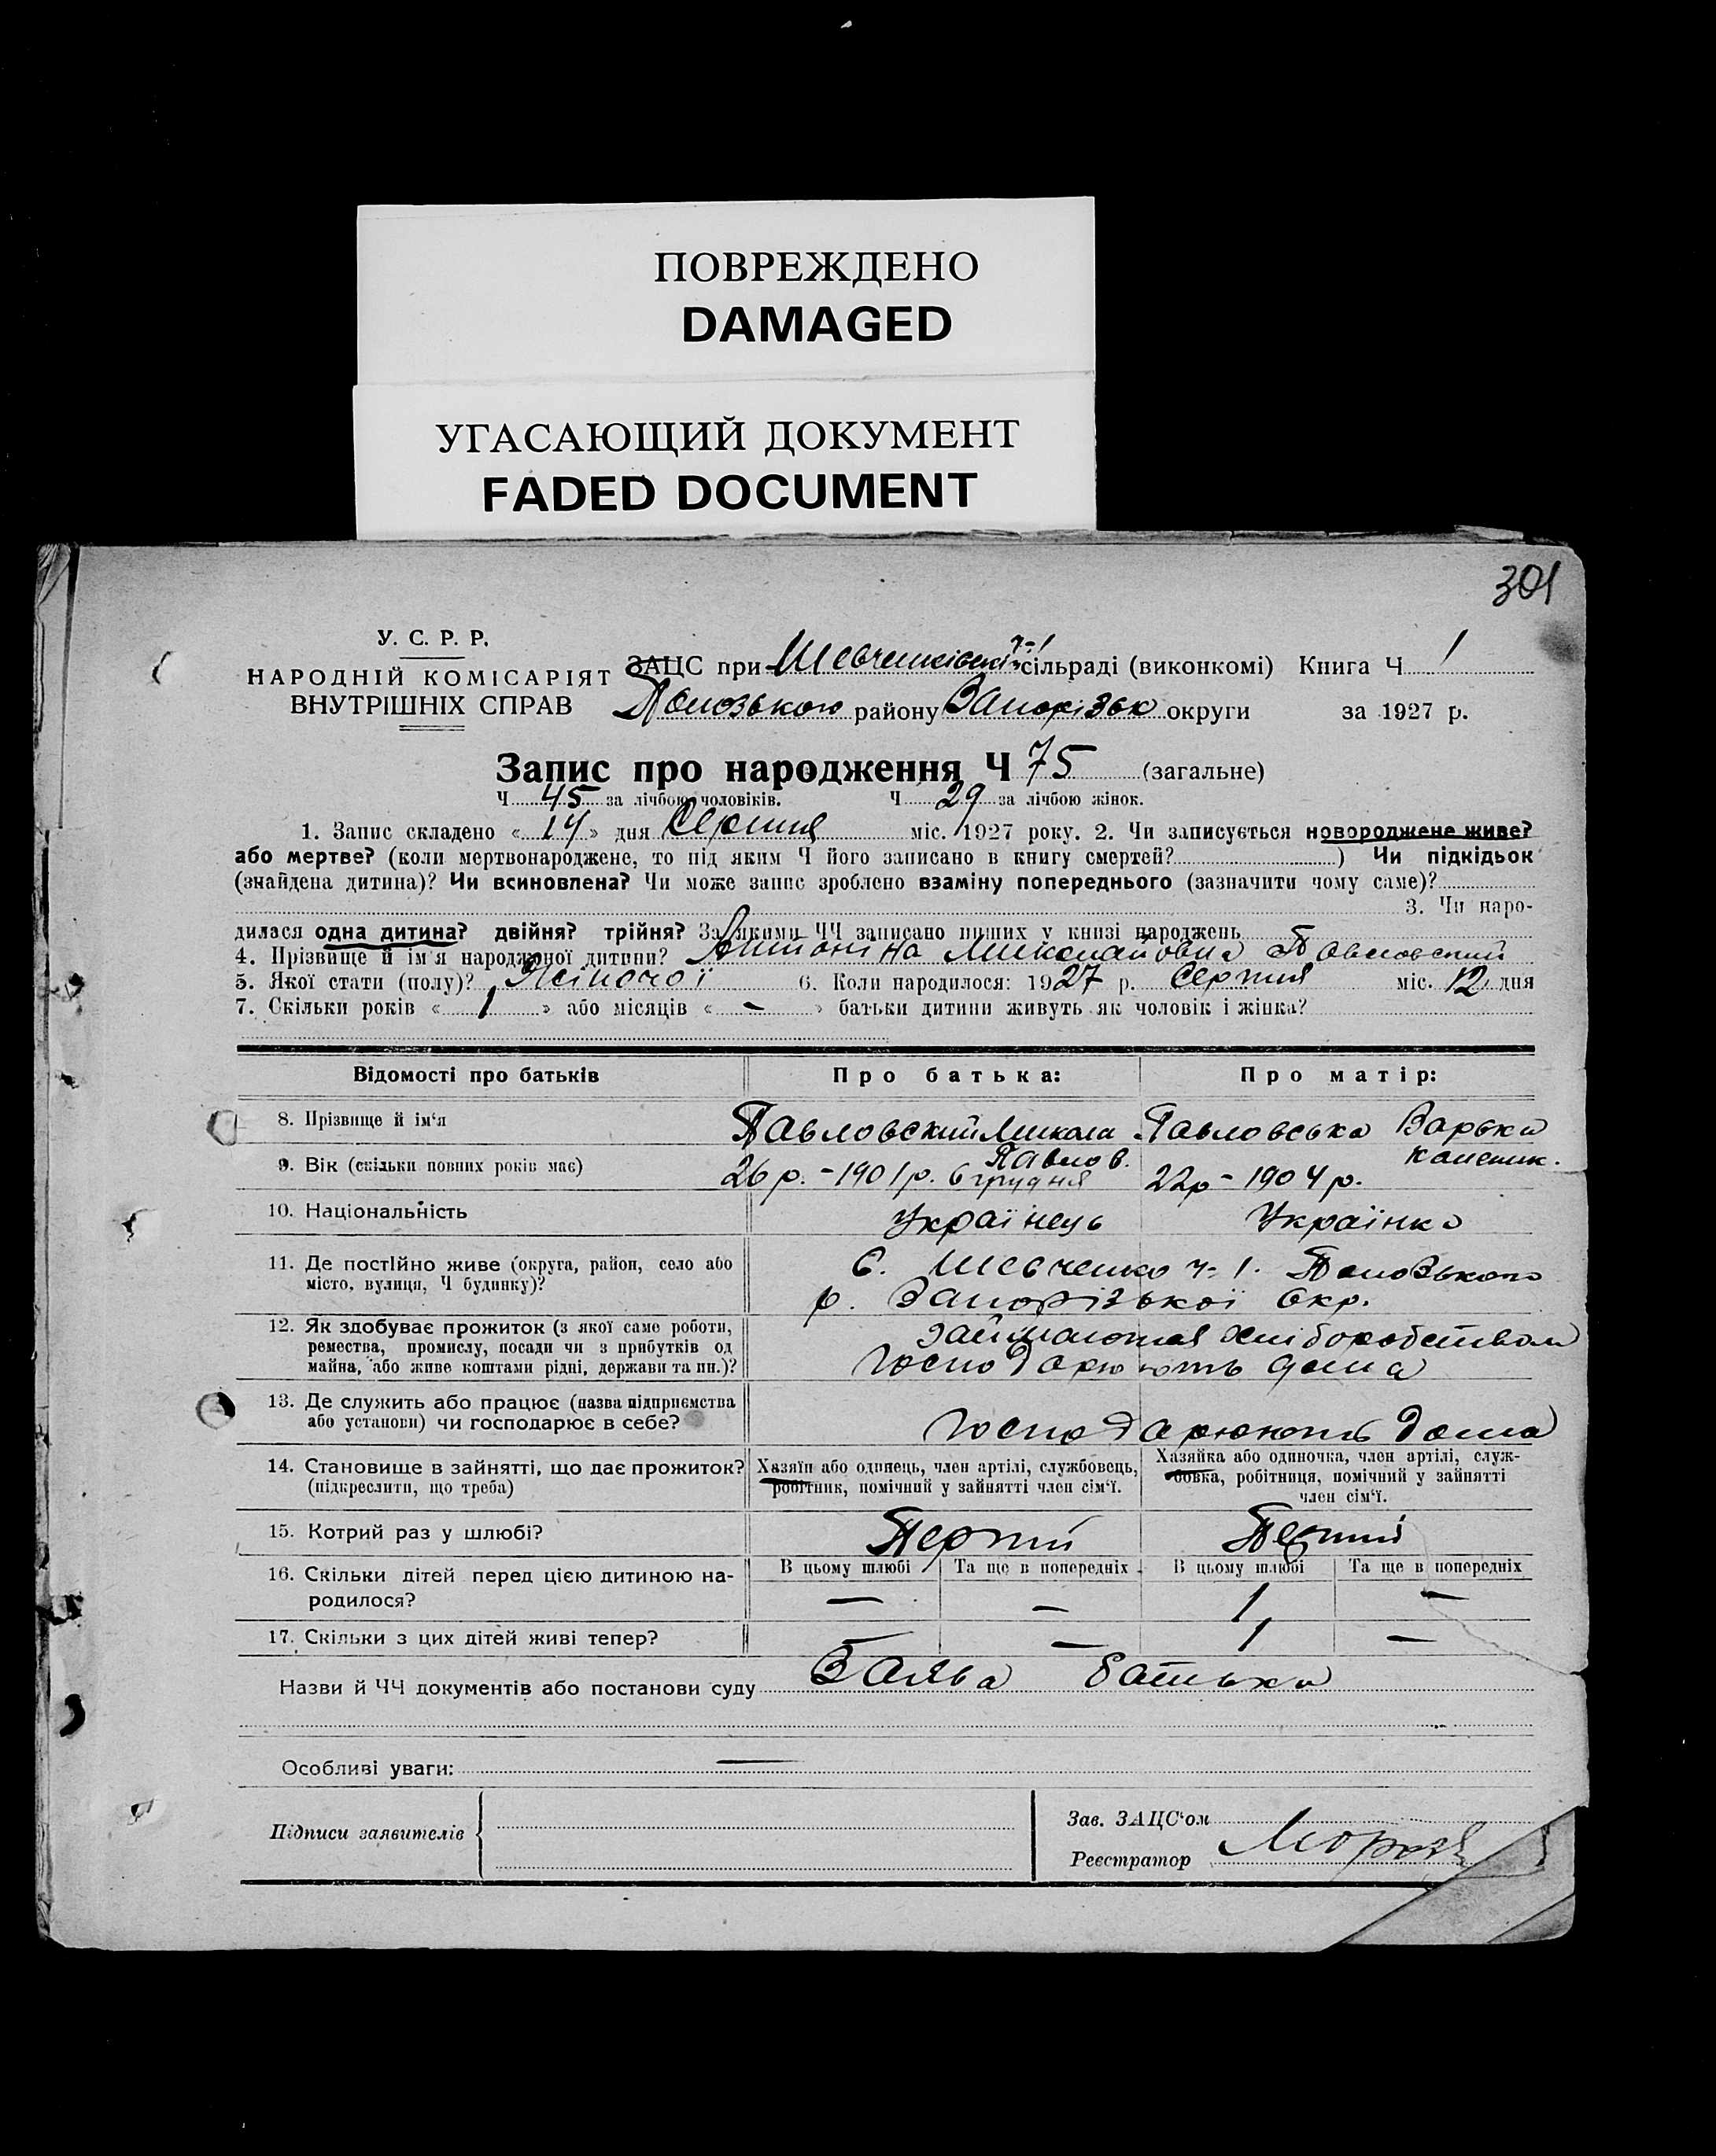 ПОВРЕЖДЕНО
DAMAGED
УГАСАЮЩИЙ ДОКУМЕНТ
FADED DOCUMENT
301
У. С. Р. Р.
НАРОДНІЙ КОМІСАРІЯТ
ВНУТРІШНІХ СПРАВ
ЗАЦС при Шевченківській ч-1 сільраді (виконкомі) Книга Ч 1
Пологзького району Запоріз�ьк округи за 1927 р.
Запис про народження Ч 75 (загальне)
Ч 45 за лічбою чоловіків. Ч 29 за лічбою жінок.
1. Запис складено « 14 » дня Серпня міс. 1927 року. 2. Чи записується новороджене живе?
або мертве? (коли мертвонароджене, то під яким Ч його записано в книгу смертей? ) Чи підкідьок
(знайдена дитина)? Чи всиновлена? Чи може запис зроблено взаміну попереднього (зазначити чому саме)?
3. Чи наро-
дилася одна дитина? двійня? трійня? За якими ЧЧ записано инших у книзі народжень
4. Прізвище й ім'я народженої дитини? Антоніна Миколайовна Павловский
5. Якої стати (полу)? Жіночої 6. Коли народилося: 1927 р. Серпня міс. 12 дня
7. Скільки років « 1 » або місяців « – » батьки дитини живуть як чоловік і жінка?
Відомості про батьків Про батька: Про матір:
8. Прізвище й ім'я Павловский Микола Павлов. Павловська Варька
9. Вік (скільки повних років має) 26 р. – 1901 р. 6 грудня 22 р – 1904 р.
10. Національність Українець Українка
11. Де постійно живе (округа, район, село або
місто, вулиця, Ч будинку)?
С. Шевченко ч-1. Пологзького
р. Запорізької Окр.
12. Як здобуває прожиток (з якої саме роботи,
ремества, промислу, посади чи з прибутків од
майна, або живе коштами рідні, держави та ин.)?
займаються хліборобством
господарюють дома
13. Де служить або працює (назва підприємства
або установи) чи господарює в себе?
господарюють дома
14. Становище в зайнятті, що дає прожиток?
(підкреслити, що треба)
Хазяїн або одинець, член артілі, службовець,
робітник, помічний у зайнятті член сім'ї.
Хазяйка або одиночка, член артілі, служ-
бовка, робітниця, помічний у зайнятті
член сім'ї.
15. Котрий раз у шлюбі? Перший Перший
В цьому шлюбі Та ще в попередніх В цьому шлюбі Та ще в попередніх
16. Скільки дітей перед цією дитиною на-
родилося? — — 1 —
17. Скільки з цих дітей живі тепер? — — 1 —
Назви й ЧЧ документів або постанови суду Заява батька
Особливі уваги: —
Підписи заявителів
Зав. ЗАЦС'ом
Реєстратор